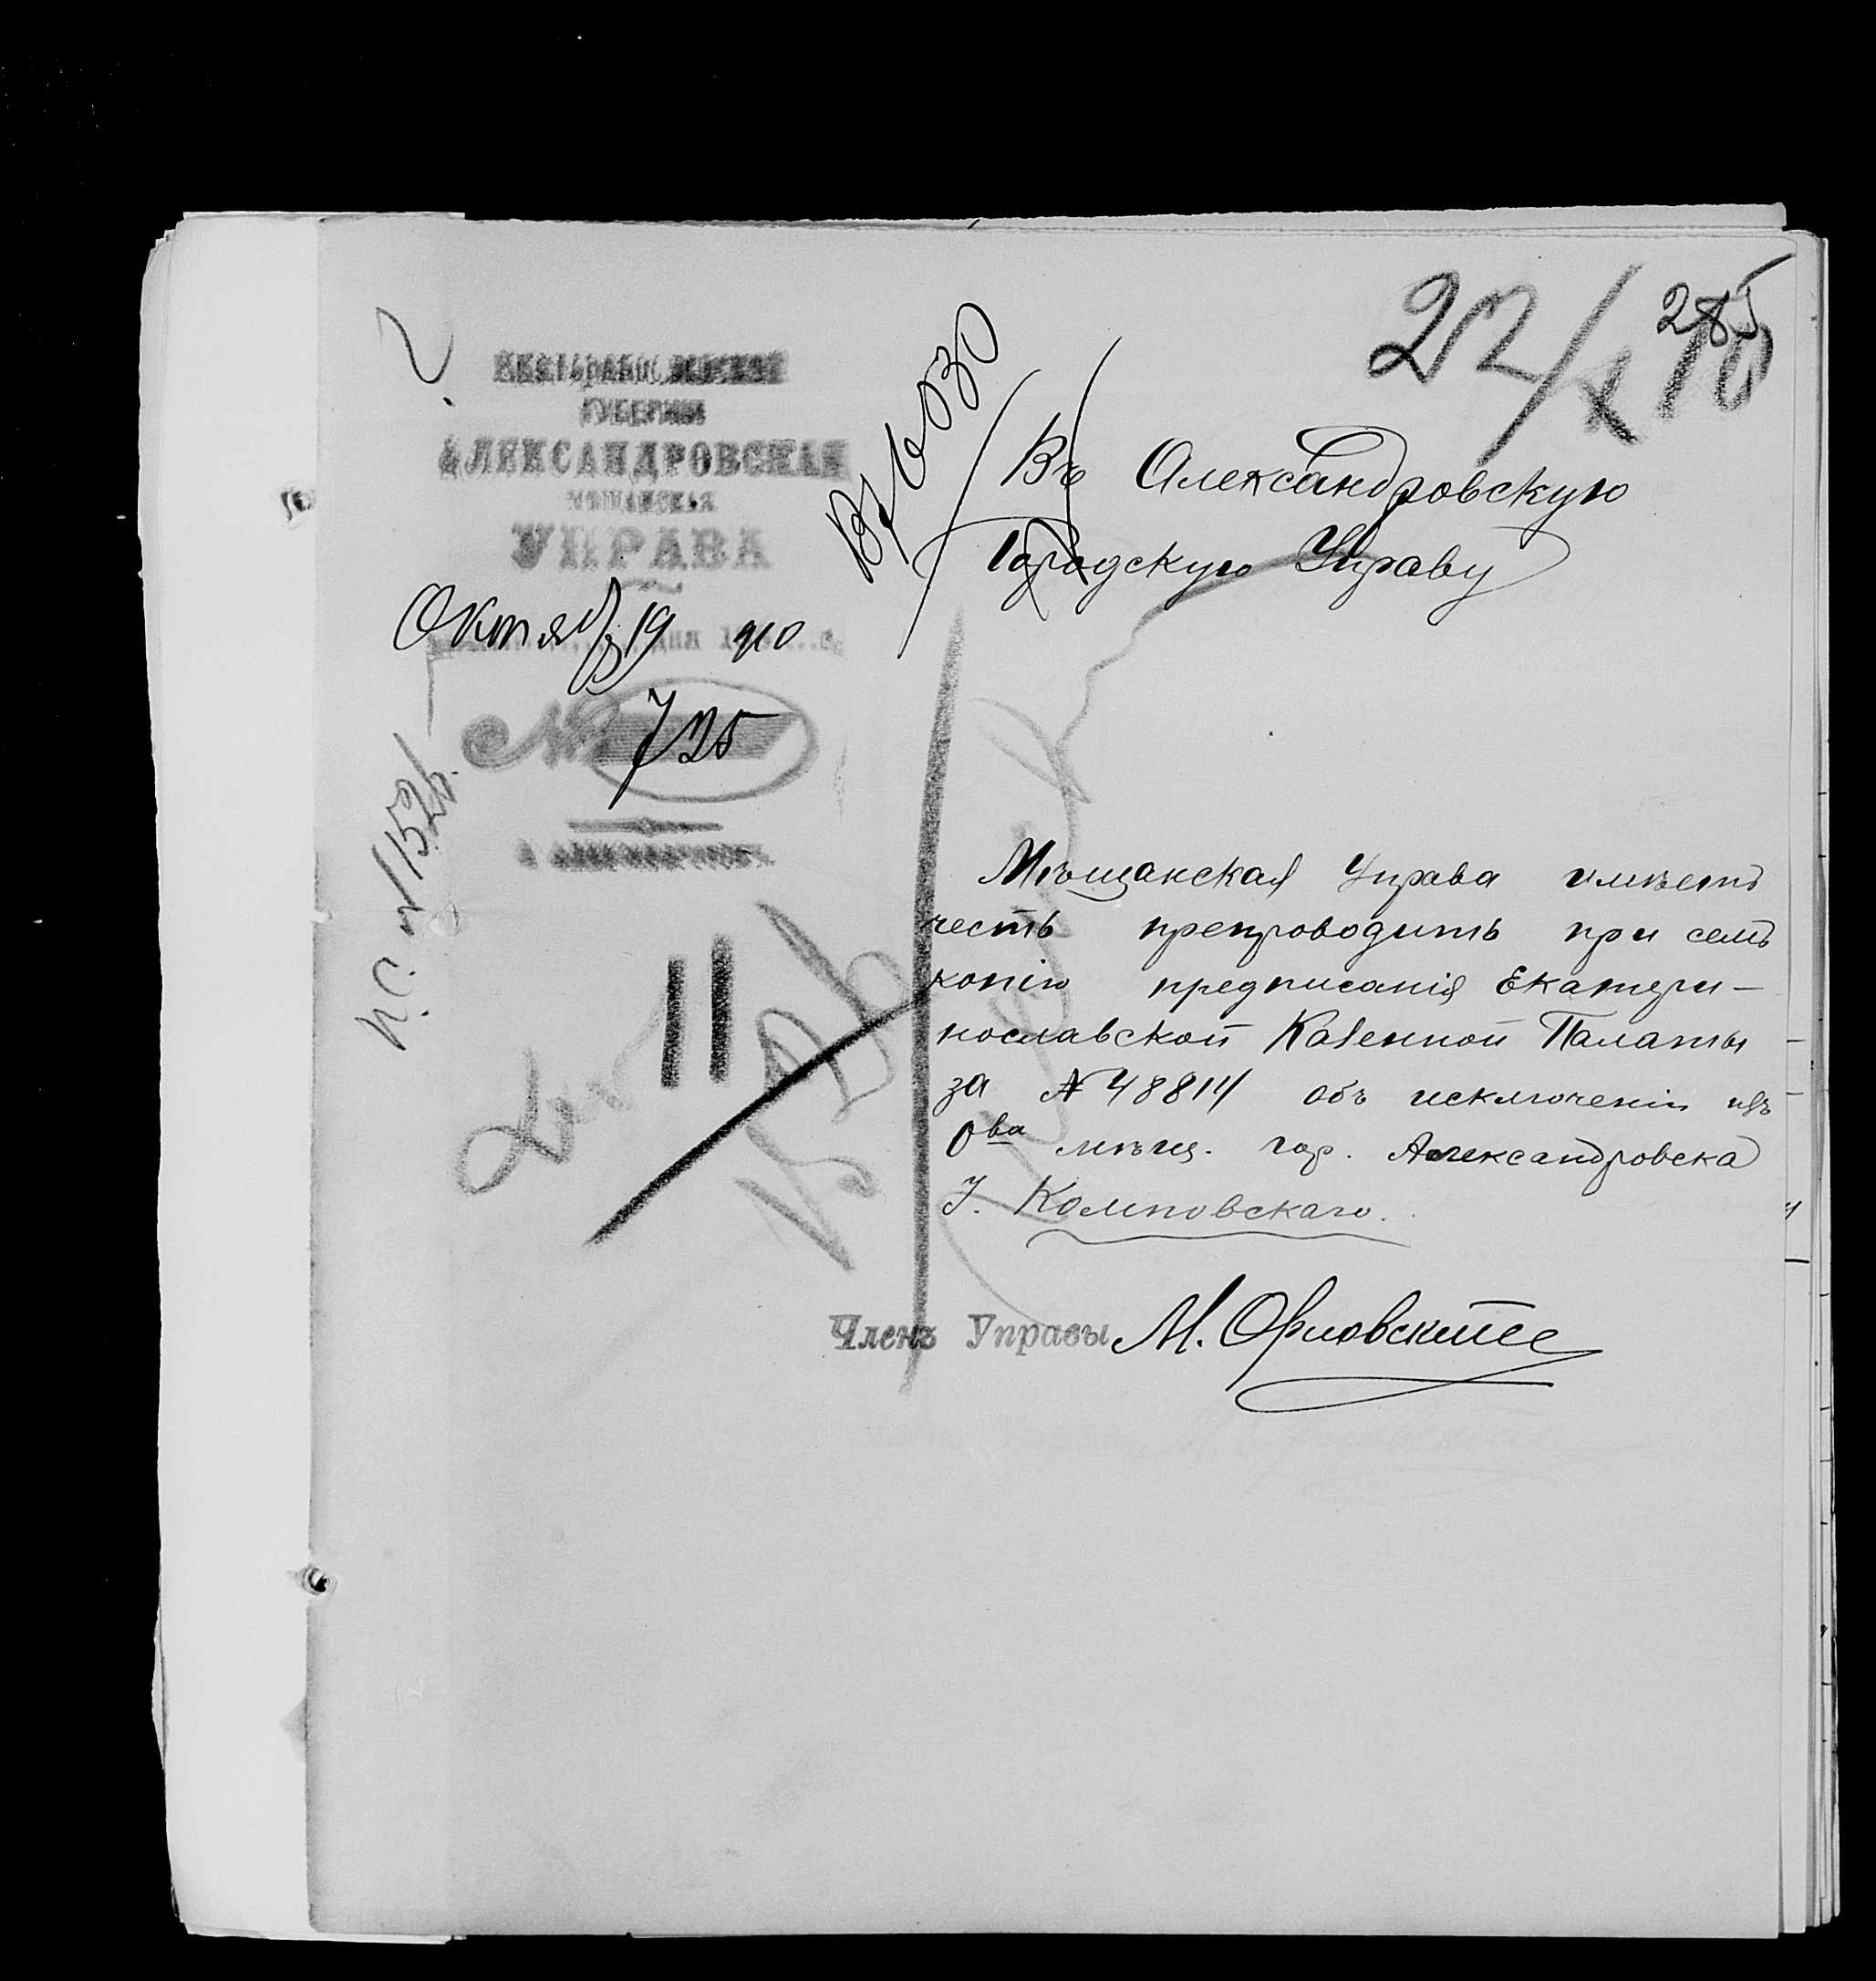 285
22/X 10
Вх 6030
ЕКАТЕРИНОСЛАВСКОЙ
ГУБЕРНІИ
АЛЕКСАНДРОВСКАЯ
МѢЩАНСКАЯ
УПРАВА
Октяб 19 дня 1910 г.
№ 725
г. АЛЕКСАНДРОВСКЪ.
Въ Александровскую
Городскую Управу
Мѣщанская Управа имѣетъ
честь препроводить при семъ
копію предписанія Екатери-
нославской Казенной Палаты
за № 48811 объ исключеніи изъ
Ова мѣщ. гор. Александровска
І. Комповскаго.
Членъ Управы М. Орловскій